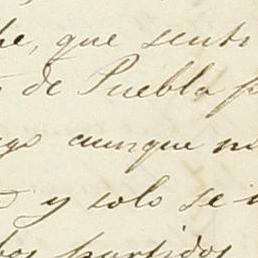 que senti
de Puebla p
go aunque n
y solo se
bos partidos